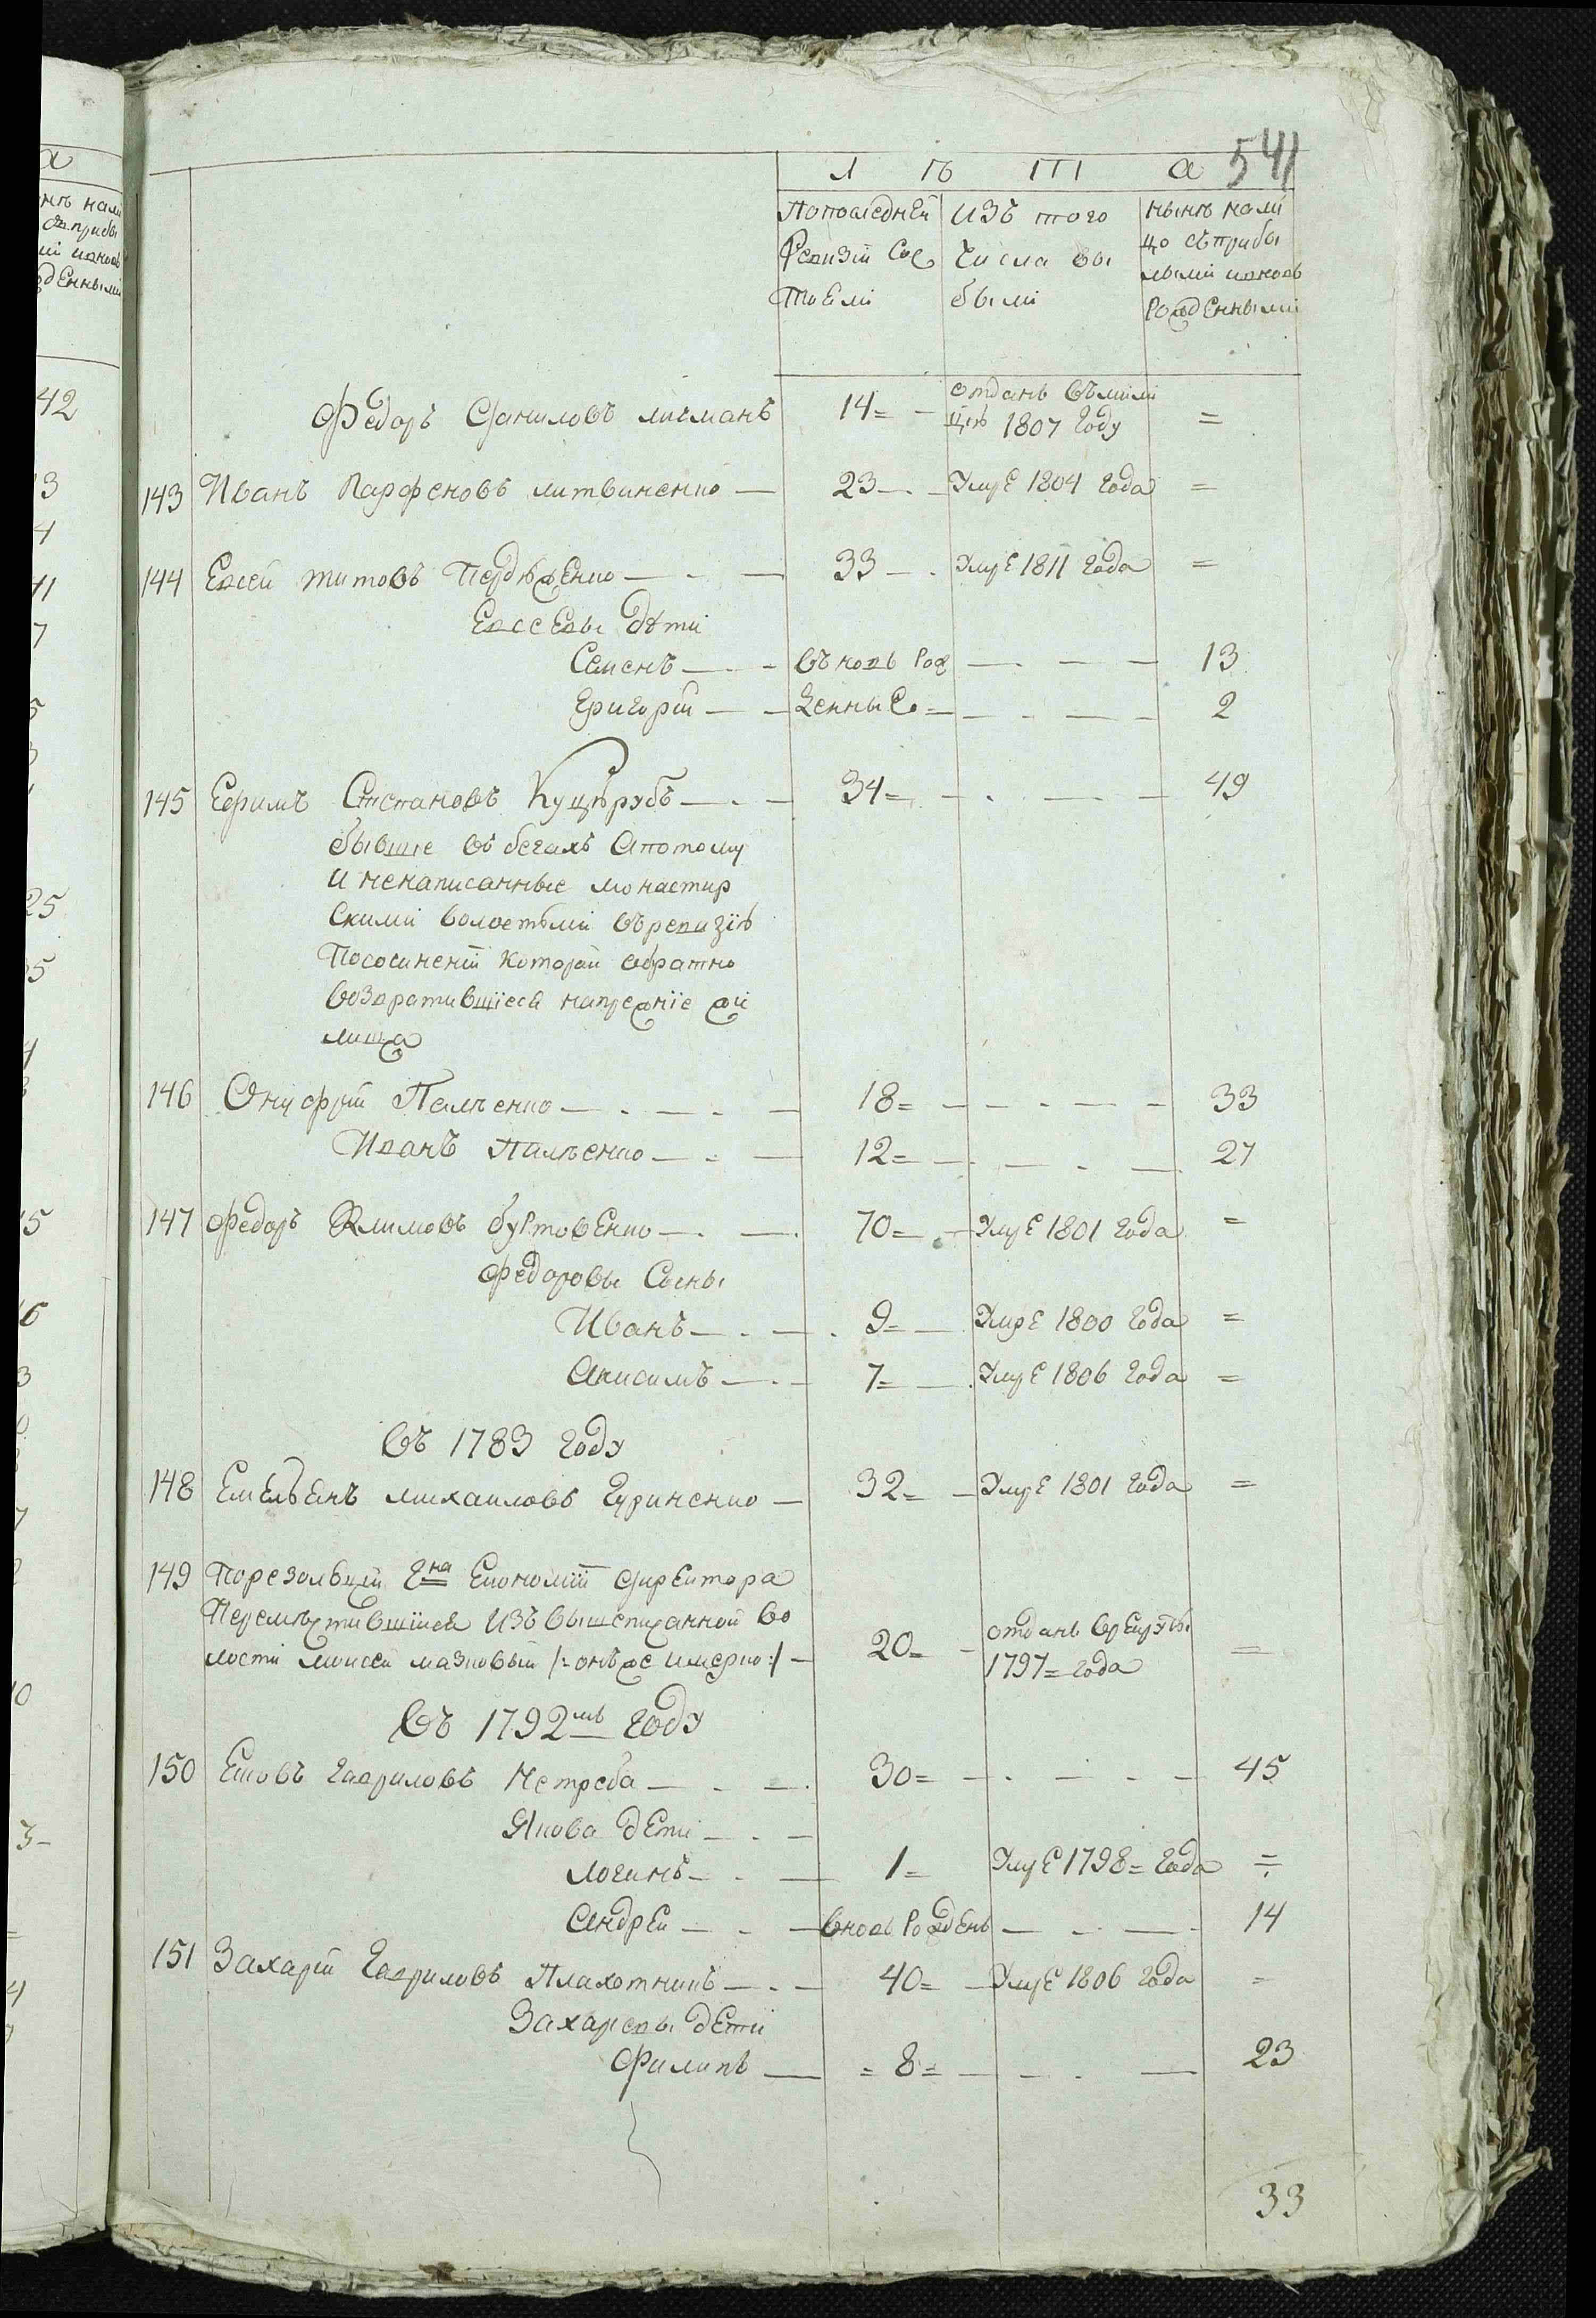 541
Л Ѣ Т А
Попоследней Изъ того нынѣ нали
Ревизiи Сос Числа вы цо съприбы
тоЕлi былi лымi ивновь
Рожденнымi
Федоръ Даниловъ 14= отданъ въмили
цiю 1807 Году =
143 Иванъ Парфеновъ литвиненко — 23 — УмрЕ 1804 Года =
144 Евсей титовъ 33 — УмрЕ 1811 Года =
Евсеевы дѣти
Семенъ — въновь Рож — 13
Григорiй — денныЕ = — 2
145 Ефимъ Степановъ Куцѣрубъ — 34= — 49
бывшiе въ бегахъ Апотому
И ненаписанные монастир
Скимi волостьмi въревизiѣ
Пососинeнiй которай обратно
возвратившiеся напрежнiе жи
лища
146 Онуфрiй Палѣенко — 18= — 33
Иванъ Палѣенко — 12= — 27
147 Федоръ Климовъ буртовЕнко — 70= — УмрЕ 1801 Года =
Федоровы Сыны
Иванъ — 9= — УмрЕ 1800 Года =
Анисимъ — 7= — УмрЕ 1806 Года =
Въ 1783 Году
148 Емельянъ михаиловъ Гуриненко — 32= — УмрЕ 1801 Года =
149 Порезольцiи Гна Економiи директора
Перемѣстившiйся Изъ вышепиханной во
лости Моисей мазновый /: онъ же :/ — 20= — отданъ врекруты
1797= Года =
Въ 1792мъ Году
150 Ековъ Гавриловъ Нетреба — 30= — 45
Якова дЕти —
Логинъ — 1= УмрЕ 1798= Года =
Андрей — вновь Рожденъ — 14
151 Захарiй Гавриловъ Плахотникъ — 40= — УмрЕ 1806 Года =
Захаревы дЕти
Филипъ — = 8= — 23
33